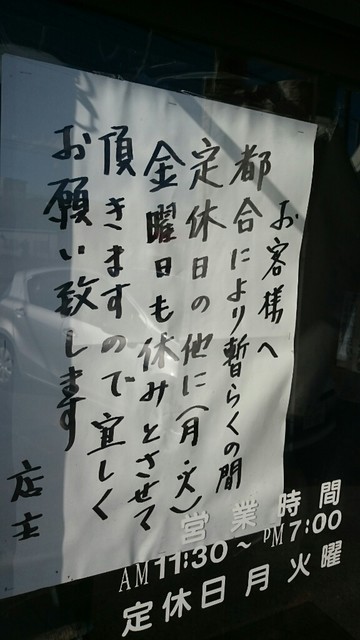 お客様へ
都合により暫らくの間
定休日の他に(月・火)
金曜日も休みとさせて
頂きますので宜しく
お願い致します
店主
営業時間
AM11:30～PM7:00
定休日月火曜